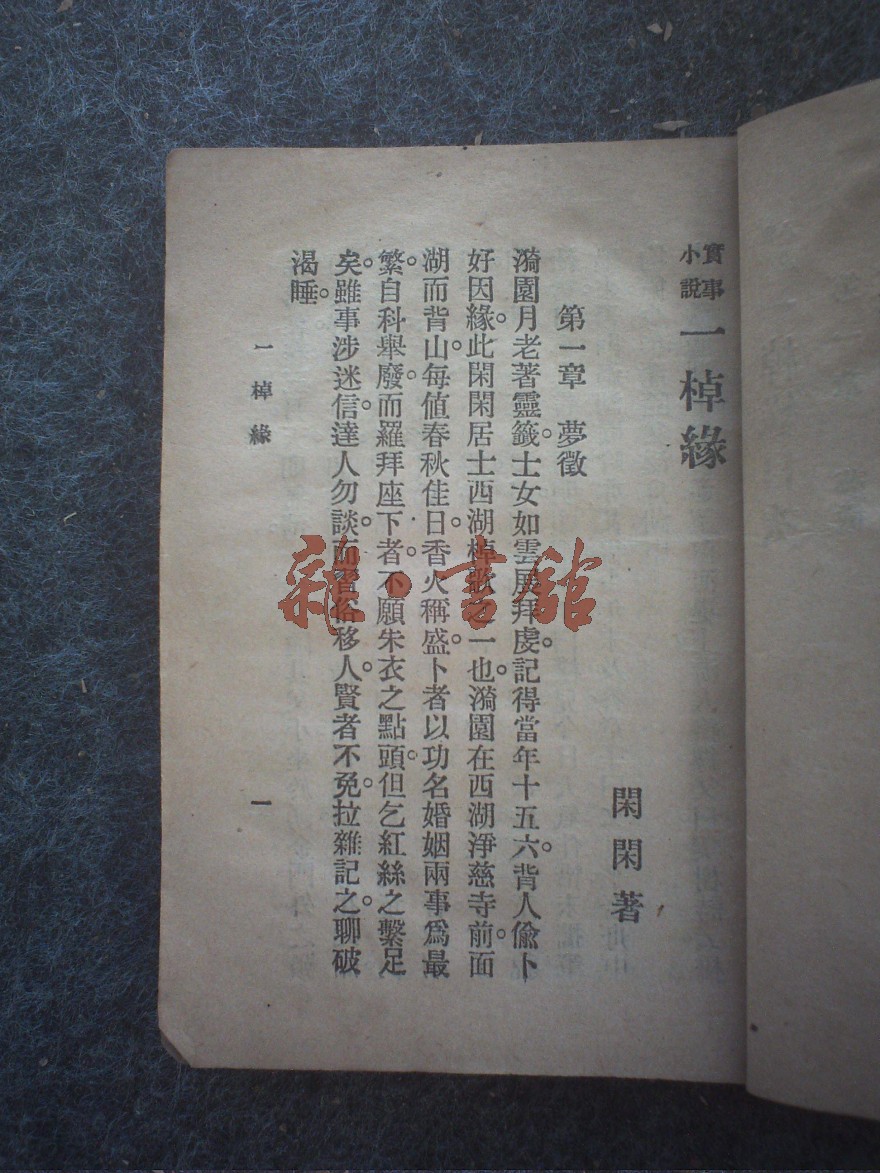 實事
小說
一棹緣
閑閑著
第一章　夢徵
漪園月老著靈籤。士女如雲展拜虔。記得當年十五六。背人偸卜
好因緣。此閑閑居士西湖棹歌之一也。漪園在西湖淨慈寺前。面
湖而背山。每値春秋佳日。香火稱盛。卜者以功名婚姻兩事爲最
繁。自科舉廢。而羅拜座下者。不願朱衣之點頭。但乞紅絲之繫足
矣。雖事涉迷信。達人勿談。而習俗移人。賢者不免。拉雜記之。聊破
渴睡。
一棹緣
一
雜·書舘